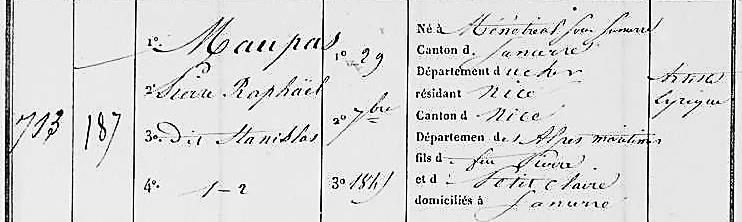 713
187
1º Maupas
2º Pierre Raphaël
3º dit Stanislas
4º 1-2
1º 29
2º 7bre
3º 1841
Né à Ménétréol sous Sancerre
Canton d Sancerre
Département du cher
résidant Nice
Canton d Nice
Départemen des Alpes maritimes
fils d feu Pierre
et d Petit Claire
domiciliés à Sancerre
Artiste
Lyrique